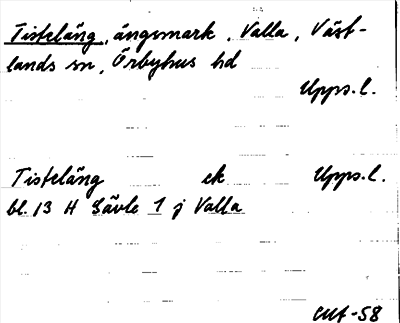 Tisteläng, ängsmark, Valla, Väst-
lands sn, Örbyhus hd
Upps.l.
Tisteläng ek Upps.l.
bl. 13 H Gävle 1 j Valla
-58